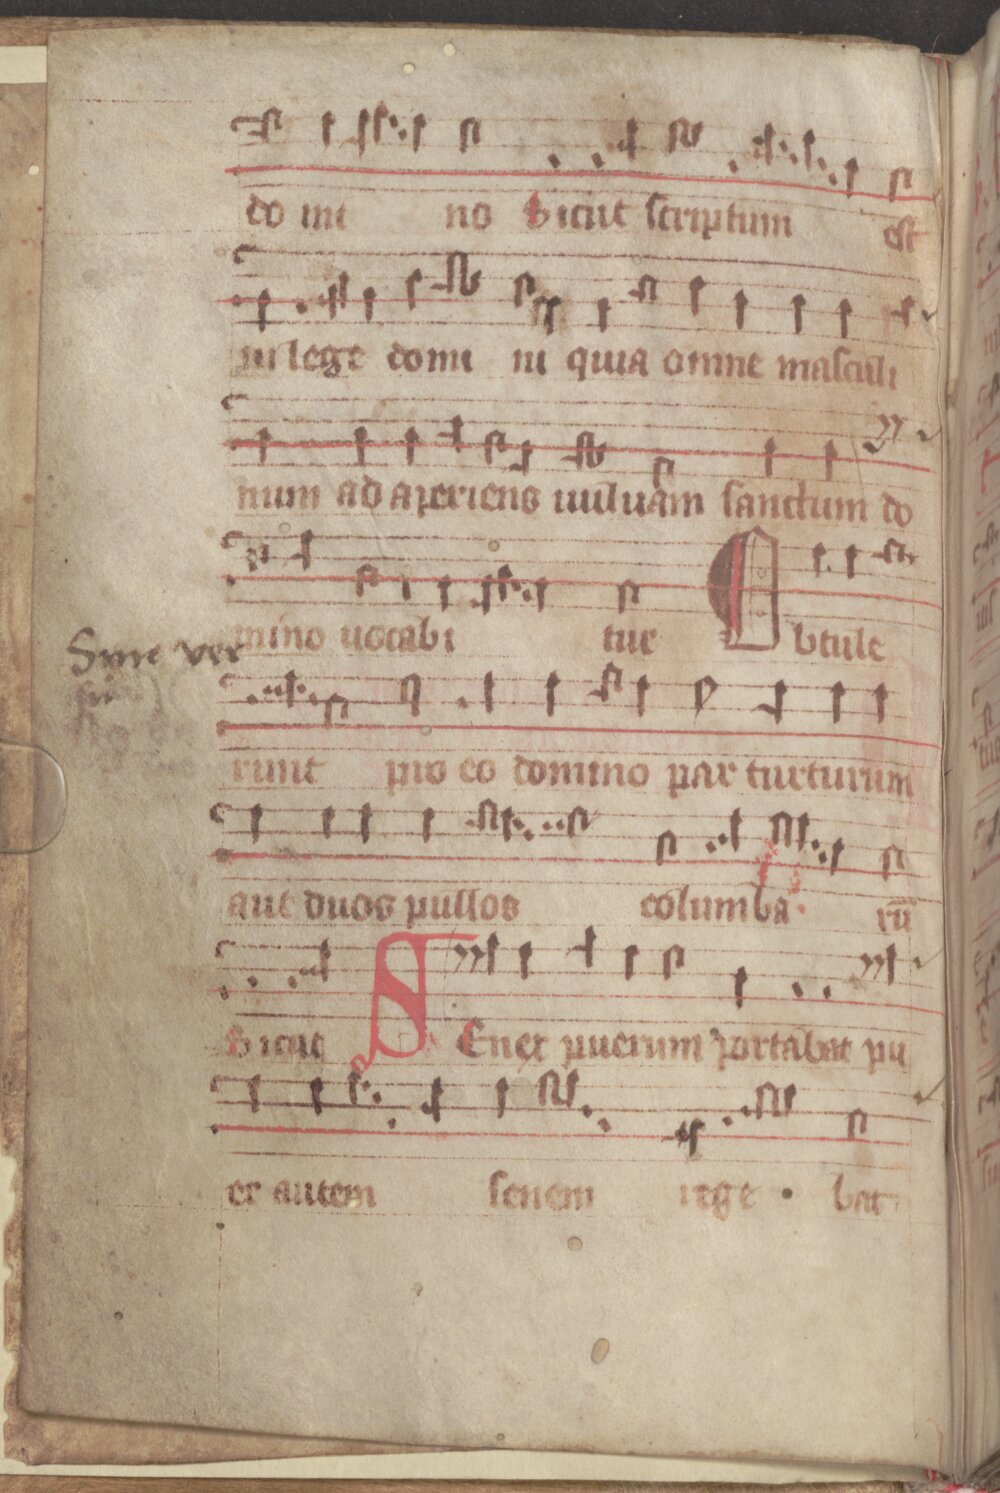 do mi no Sicut scriptum est
in lege domi ni quia omne masculi
num ad aperiens uuluam sanctum do
mino uocabi tur Obtule
Sine ver
runt pro eo domino par turturum
aut duos pullos columba rū
Sicut SEnex puerum portabat pu
er autem senem rege bat